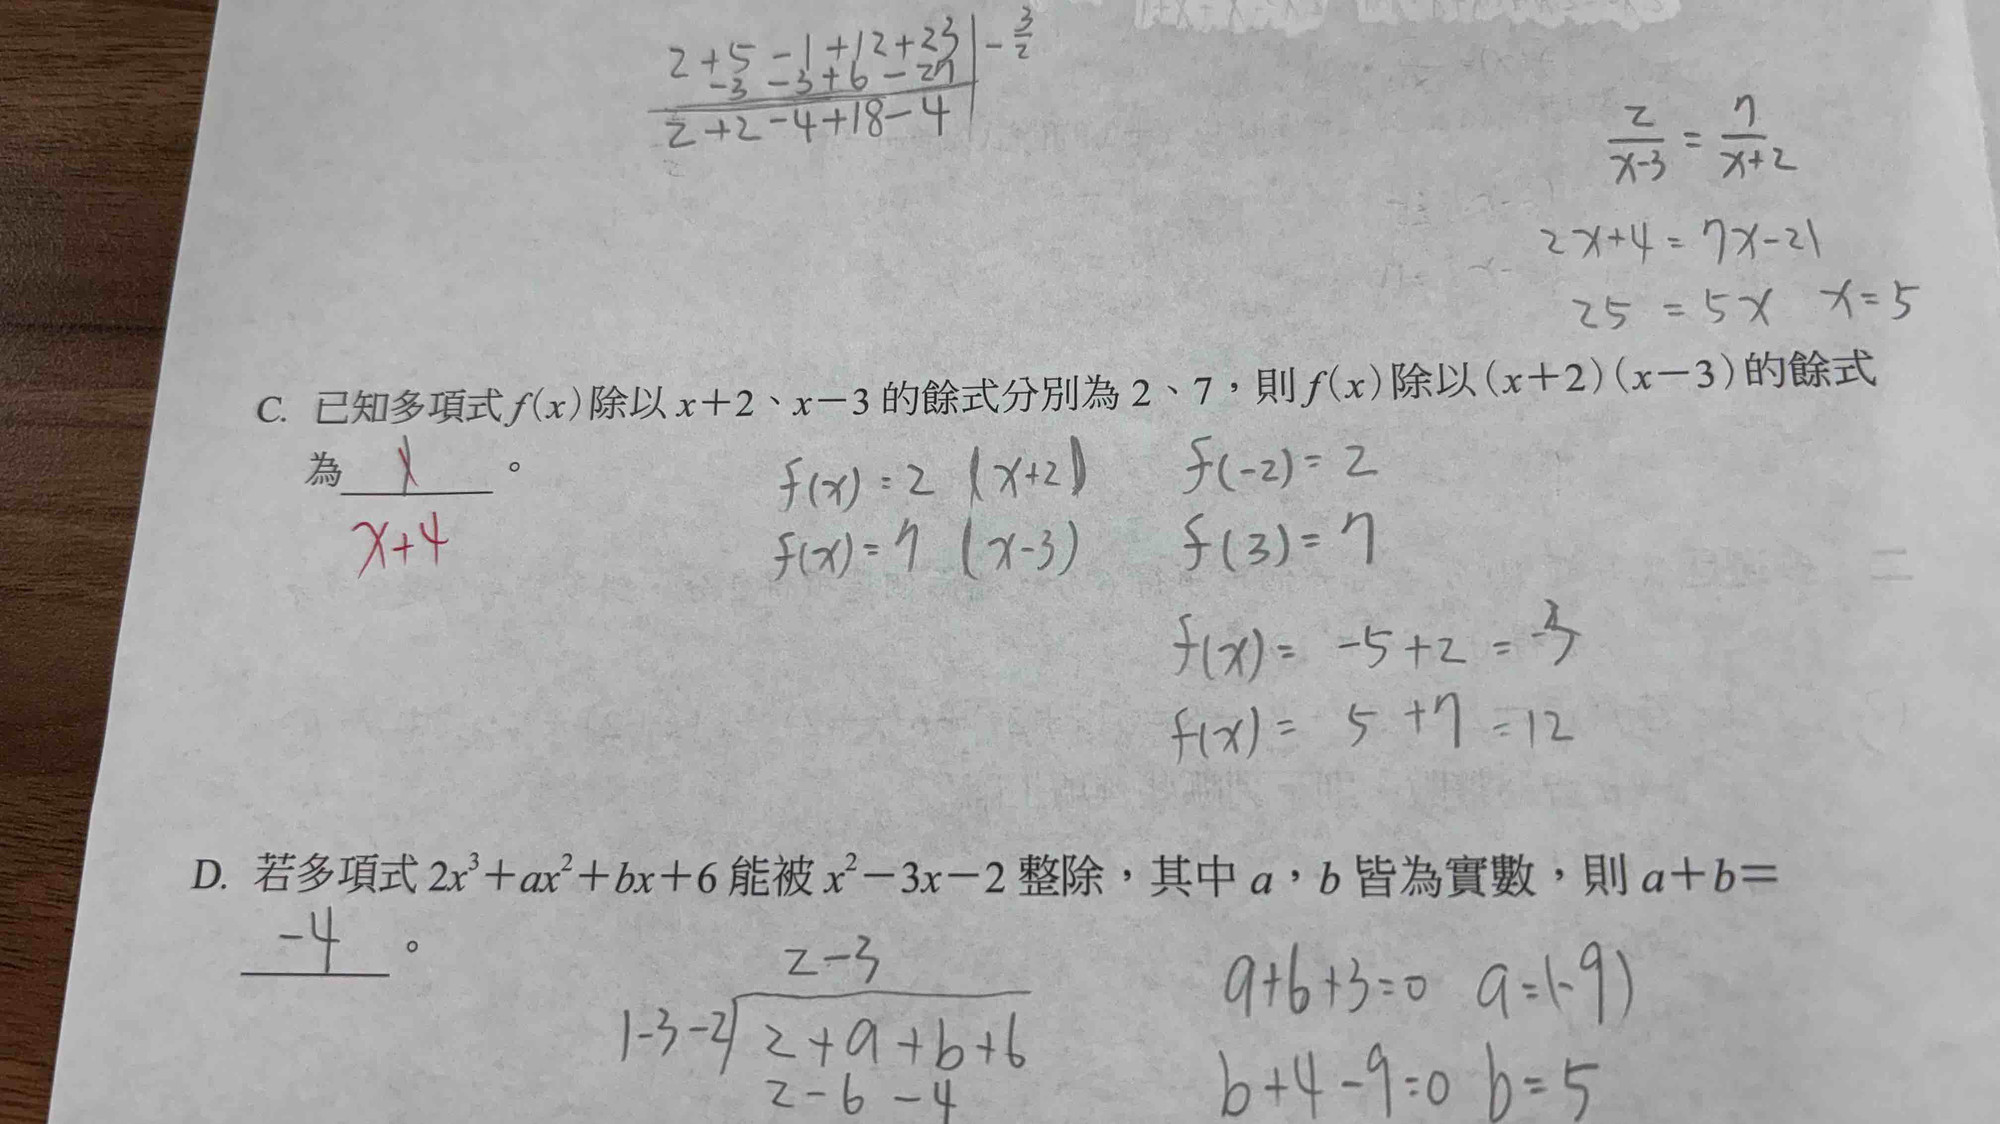 2+5-1+12+23 | -3/2
-3-3+6-27
2+2-4+18-4
2/(x-3) = 7/(x+2)
2x+4=7x-21
25 =5x x=5
C. 已知多項式f(x)除以x+2、x-3的餘式分別為2、7，則f(x)除以(x+2)(x-3)的餘式
為 。
x+4
f(x)=2 (x+2) f(-2)=2
f(x)=7 (x-3) f(3)=7
f(x)= -5+2 =-3
f(x)= 5+7 =12
D. 若多項式2x³+ax²+bx+6能被x²-3x-2整除，其中a，b皆為實數，則a+b=
-4 。
2-3
1-3-2 2+a+b+6
2-6-4
a+6+3=0 a=(-9)
b+4-9=0 b=5